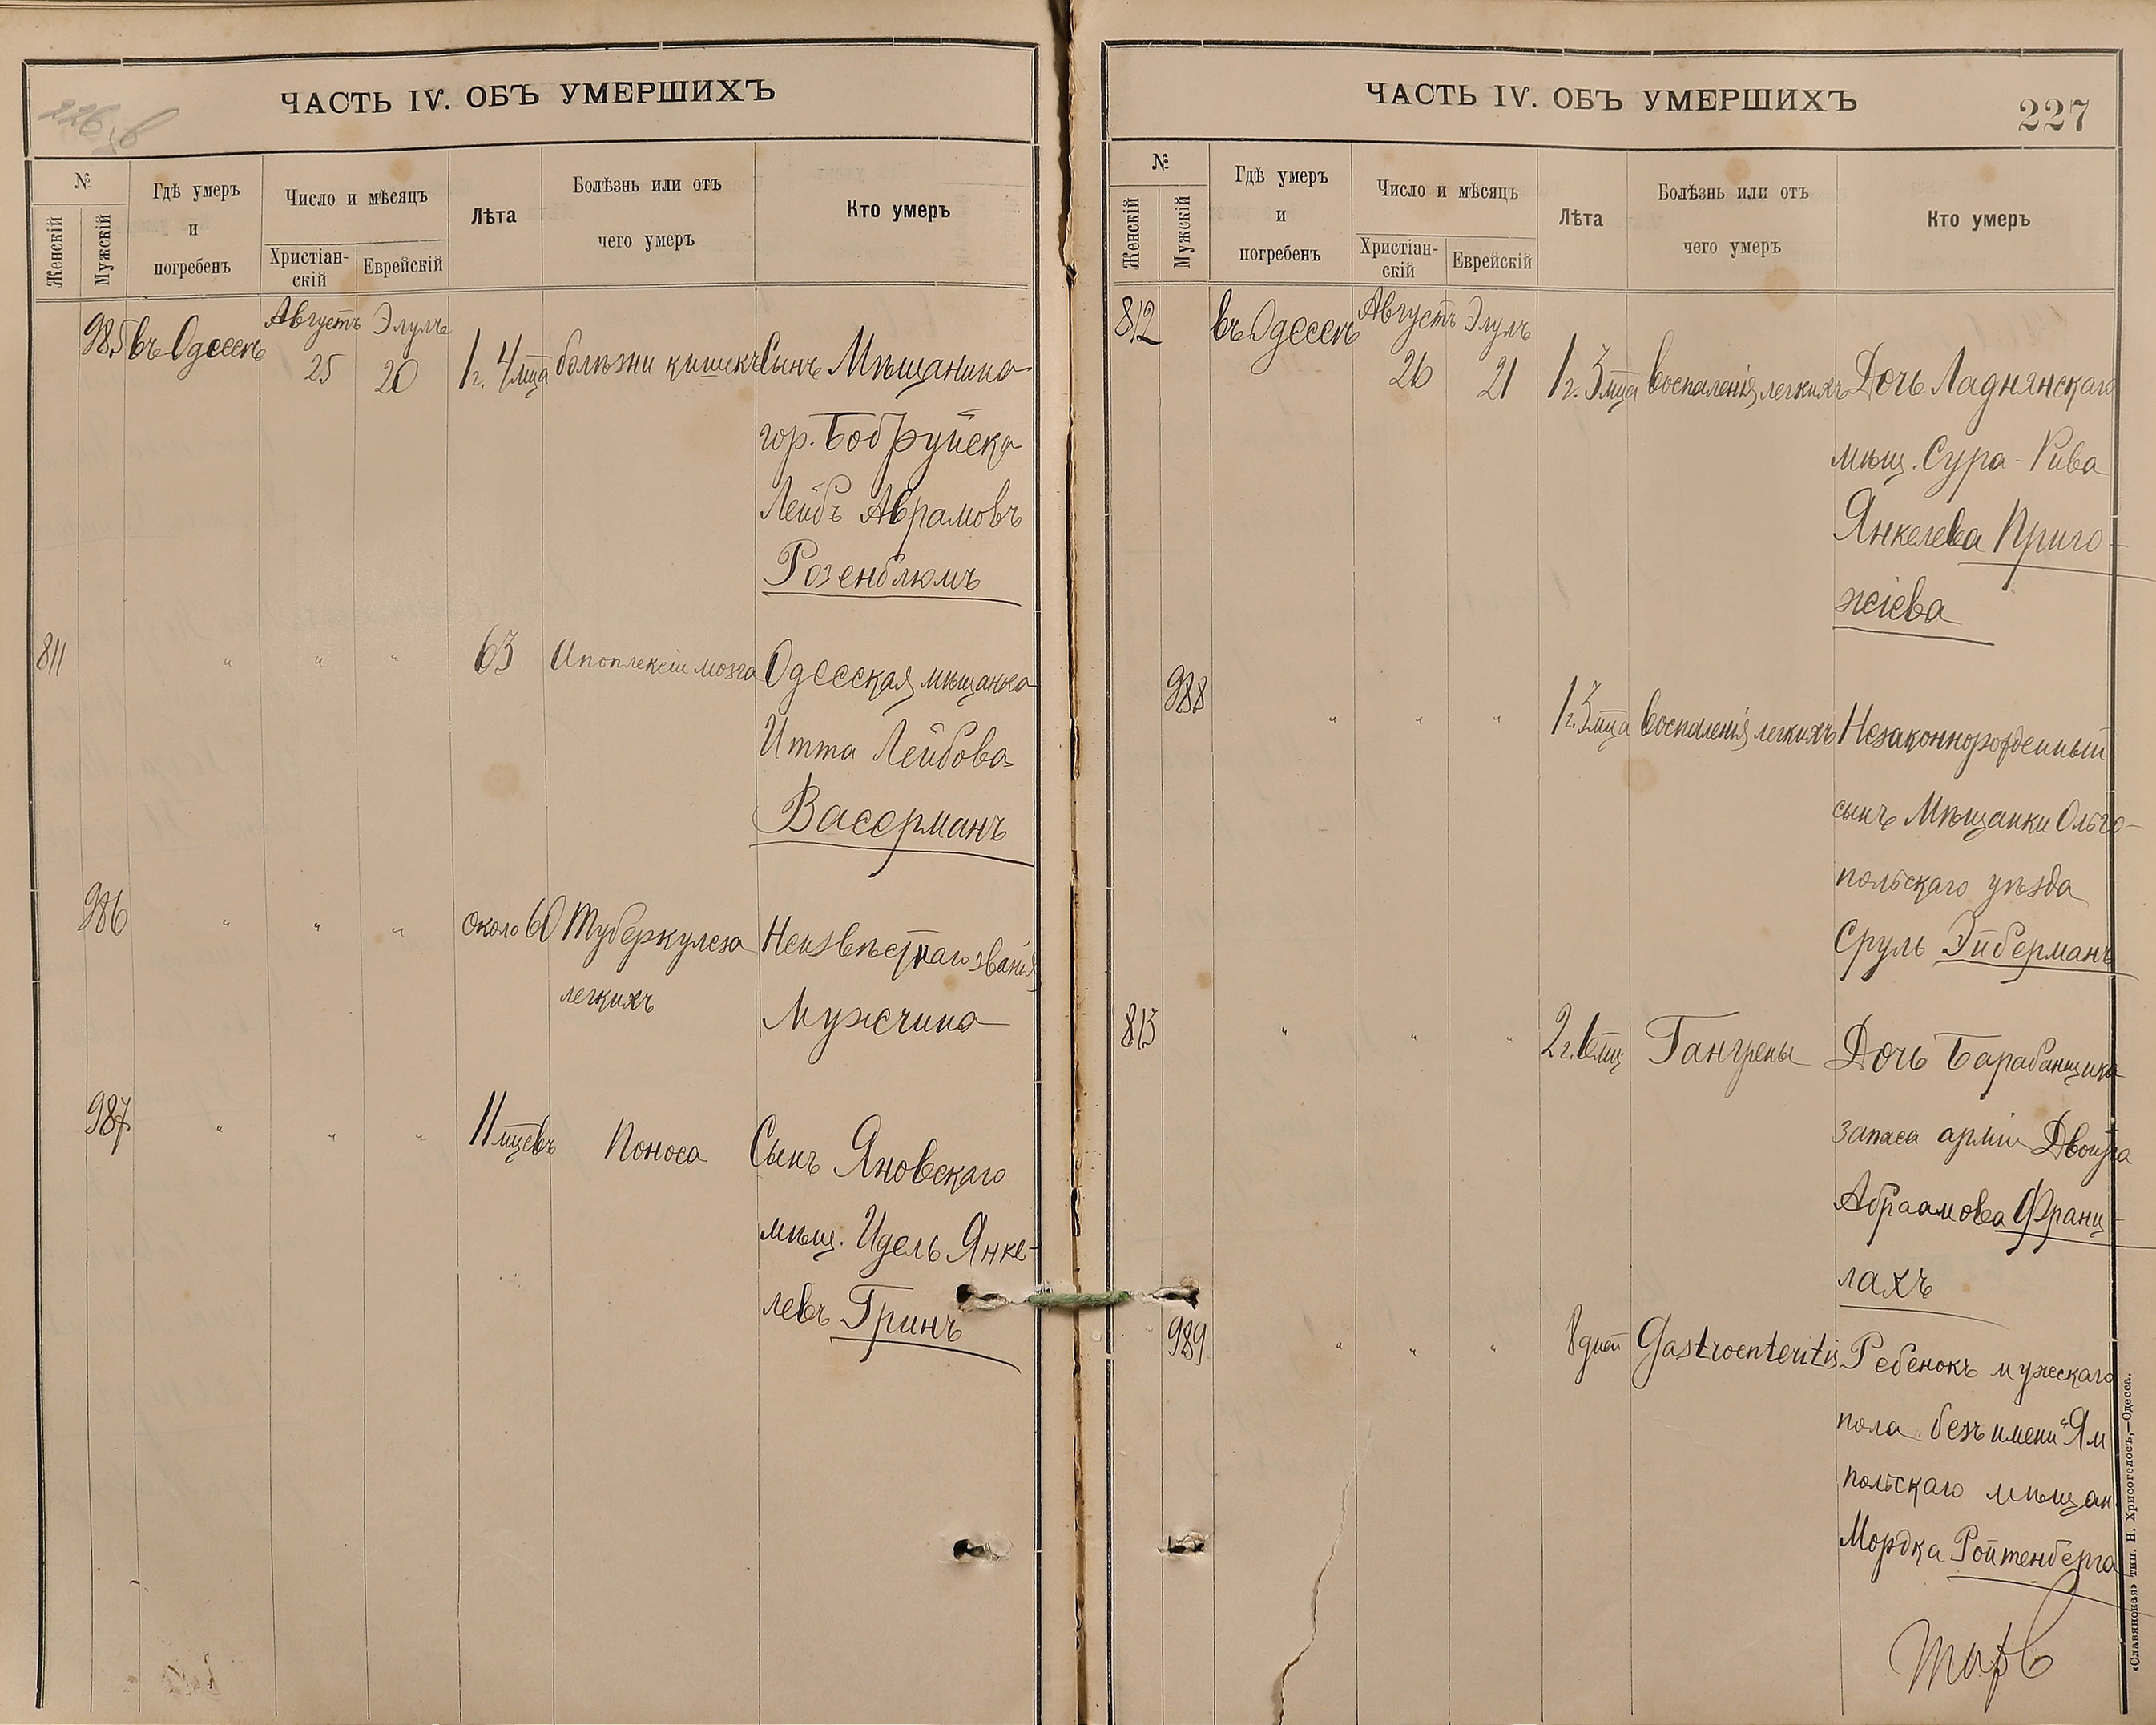 226 в
ЧАСТЬ IV. ОБЪ УМЕРШИХЪ
№
Женскій
Мужскій
Гдѣ умеръ
и
погребенъ
Число и мѣсяцъ
Христіан-
скій
Еврейскій
Лѣта
Болѣзнь или отъ
чего умеръ
Кто умеръ
985 въ Одессѣ Августъ 25 Элулъ 20 1 г. 4 м͠ца болѣзни кишекъ Сынъ Мѣщанина
гор. Бобруйска
Лейбъ Аврамовъ
Розенблюмъ
811 " " " 63 Апоплексіи мозга Одесская мѣщанка
Итта Лейбова
Васерманъ
986 " " " около 60 Туберкулеза Неизвѣстнаго званія
легкихъ Мужчина
987 " " " 11 мцевъ Поноса Сынъ Яновскаго
мѣщ. Идель Янке-
левъ Гринъ
ЧАСТЬ IV. ОБЪ УМЕРШИХЪ
227
№
Женскій
Мужскій
Гдѣ умеръ
и
погребенъ
Число и мѣсяцъ
Христіан-
скій
Еврейскій
Лѣта
Болѣзнь или отъ
чего умеръ
Кто умеръ
812 въ Одессѣ Августъ 26 Элулъ 21 1 г. 3 мца воспаленія легкихъ Дочь Ладнянскаго
мѣщ. Сура-Рива
Янкелева Приго-
жіева
988 " " " 1 г. 3 мца воспаленія легкихъ Незаконнорожденный
сынъ Мѣщанки Ольго-
польскаго уѣзда
Сруль Эйберманъ
813 " " " 2 г. 6 мц Гангрены Дочь Барабанщика
запаса арміи Двойра
Абраамова Франц-
лахъ
989 " " " 8 дней Gastroenteritis Ребенокъ мужскаго
пола „безъ имени“ Ям
польскаго мѣщан
Мордка Ройтенберга
«Славянская» тип. Н. Хрисогелосъ,—Одесса.